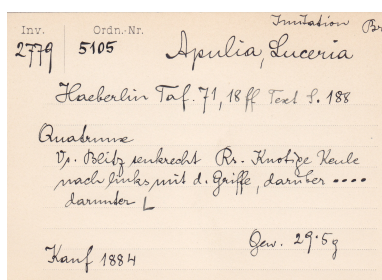 Imitation Br
Inv. Ordn.-Nr.
2779 5105 Apulia, Luceria
Haeberlin Taf. 71, 18ff Text S. 188
Quatrunx
Vs. Blitz senkrecht Rs. Knotige Keule
nach links mit d. Griffe, darüber ....
darunter L
Gew. 29.5g
Kauf 1884